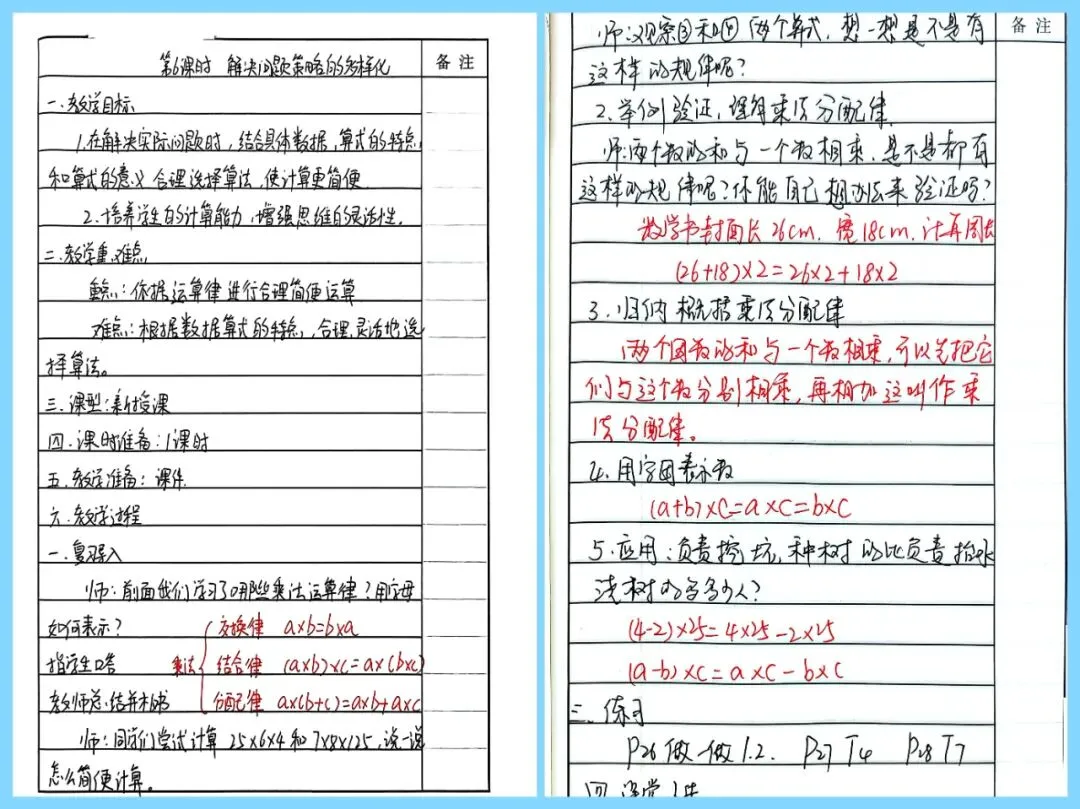 第6课时 解决问题策略的多样化
备注
一.教学目标
1.在解决实际问题时，结合具体数据，算式的特点
和算式的意义 合理选择算法，使计算更简便
2.培养学生的计算能力，增强思维的灵活性.
二.教学重.难点
重点：依据运算律进行合理简便运算
难点：根据数据算式的特点，合理.灵活地选
择算法。
三.课型：新授课
四.课时准备：1课时
五.教学准备：课件
六.教学过程
一.复习导入
师：前面我们学习了哪些乘法运算律？用字母
如何表示？
交换律 a×b=b×a
指学生口答
乘法
结合律 (a×b)×c=a×(b×c)
教师总结并板书
分配律 a×(b+c)=a×b+a×c
师：同学们尝试计算 25×6×4 和 7×8×125，说一说
怎么简便计算。
备注
师：观察③和④两个算式，想一想是不是有
这样的规律呢？
2.举例验证，理解乘法分配律.
师：两个数的和与一个数相乘，是不是都有
这样的规律呢？你能自己想办法来验证吗？
数学书封面长26cm，宽18cm，计算周长
(26+18)×2=26×2+18×2
3.归纳概括乘法分配律
两个因数的和与一个数相乘，可以先把它
们与这个数分别相乘，再相加 这叫作乘
法分配律。
4.用字母表示数
(a+b)×c=a×c=b×c
5.应用：负责挖坑，种树的比负责抬水
浇树的多多少人？
(4-2)×25=4×25-2×25
(a-b)×c=a×c-b×c
三.练习
P26 做一做 1.2. P27 T4 P28 T7
四 课堂小结